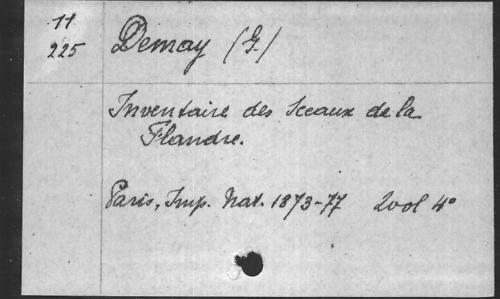 11
225
Demay (G.)
Inventaire des Sceaux de la
Flandre.
Paris, Imp. Nat. 1873-77 2 vol 4°